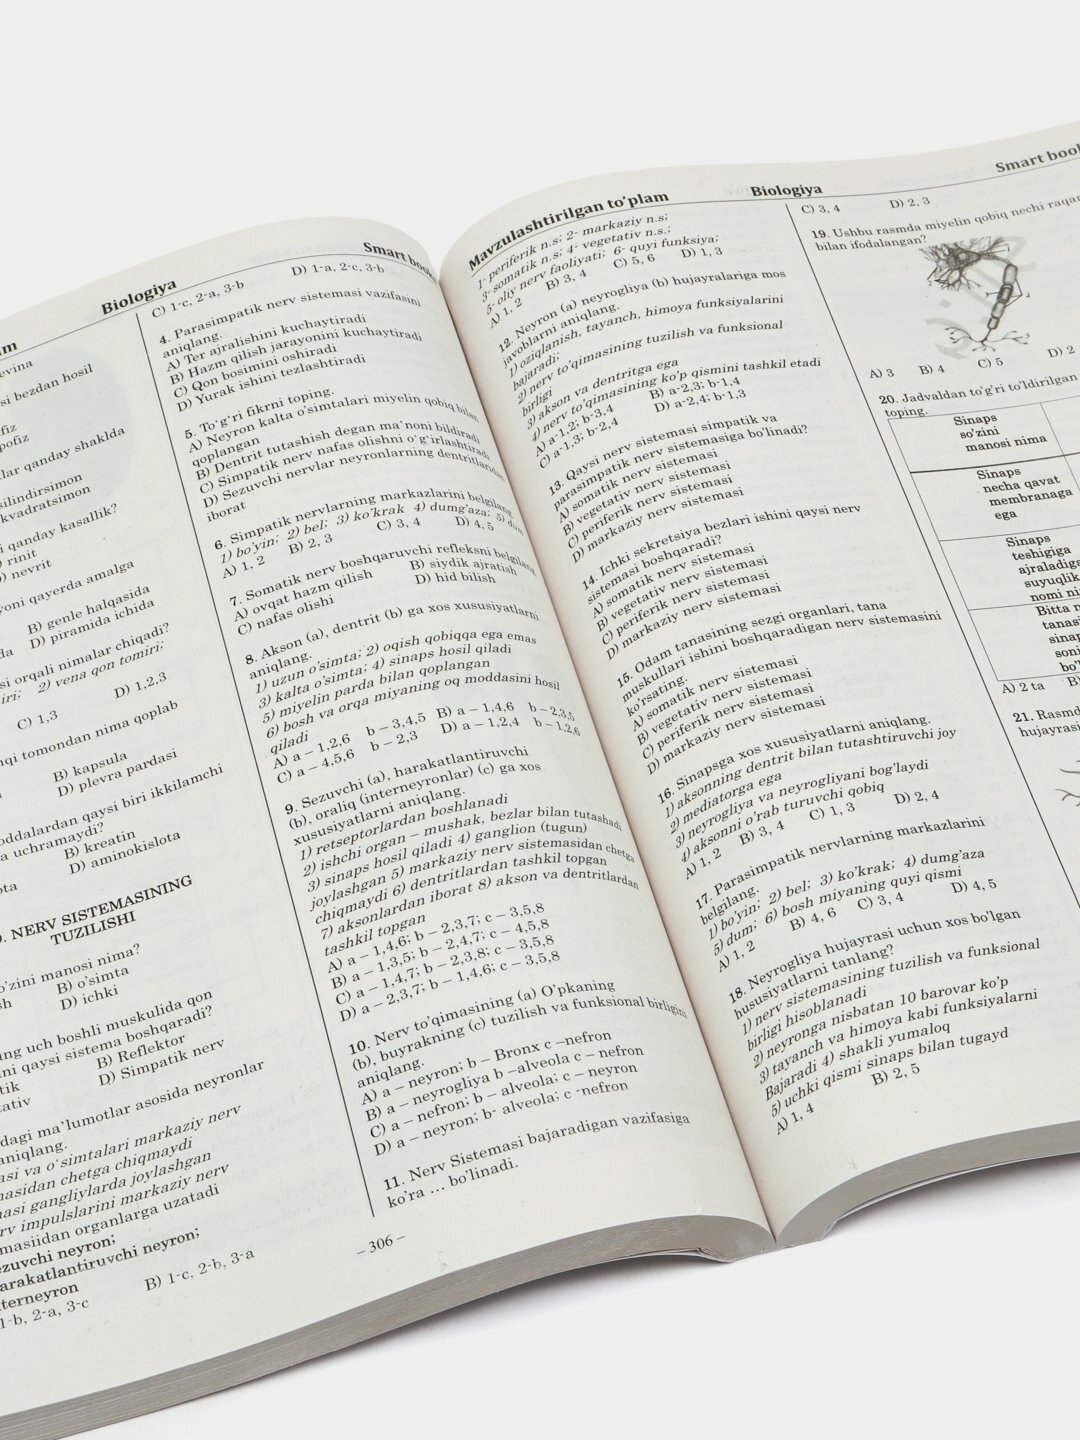 Biologiya
Smart book
evina
si bezdan hosil
lar qanday shaklda
silindrsimon
kvadratsimon
i qanday kasallik?
rinit
nevrit
yoni qayerda amalga
B) genle halqasida
D) piramida ichida
si orqali nimalar chiqadi?
2) vena qon tomiri;
C) 1,3
D) 1,2,3
qi tomondan nima qoplab
B) kapsula
D) plevra pardasi
oddalardan qaysi biri ikkilamchi
a uchramaydi?
B) kreatin
D) aminokislota
NERV SISTEMASINING
TUZILISHI
o'zini manosi nima?
B) o'simta
D) ichki
ng uch boshli muskulida qon
ini qaysi sistema boshqaradi?
B) Reflektor
D) Simpatik nerv
dagi ma'lumotlar asosida neyronlar
aniqlang.
asi va o'simtalari markaziy nerv
masidan chetga chiqmaydi
nasi gangliylarda joylashgan
rv impulslarini markaziy nerv
masiidan organlarga uzatadi
ezuvchi neyron;
arakatlantiruvchi neyron;
terneyron
1-b, 2-a, 3-c
B) 1-c, 2-b, 3-a
C) 1-c, 2-a, 3-b
D) 1-a, 2-c, 3-b
4. Parasimpatik nerv sistemasi vazifasini
aniqlang.
A) Ter ajralishini kuchaytiradi
B) Hazm qilish jarayonini kuchaytiradi
C) Qon bosimini oshiradi
D) Yurak ishini tezlashtiradi
5. To'g'ri fikrni toping.
A) Neyron kalta o'simtalari miyelin qobiq bilan
qoplangan
B) Dentrit tutashish degan ma'noni bildiradi
C) Simpatik nerv nafas olishni o'g'irlashtiradi
D) Sezuvchi nervlar neyronlarning dentritlaridan
iborat
6. Simpatik nervlarning markazlarini belgilang.
1) bo'yin; 2) bel; 3) ko'krak 4) dumg'aza; 5) dum
A) 1, 2 B) 2, 3 C) 3, 4 D) 4, 5
7. Somatik nerv boshqaruvchi refleksni belgilang
A) ovqat hazm qilish B) siydik ajratish
C) nafas olishi D) hid bilish
8. Akson (a), dentrit (b) ga xos xususiyatlarni
aniqlang.
1) uzun o'simta; 2) oqish qobiqqa ega emas
3) kalta o'simta; 4) sinaps hosil qiladi
5) miyelin parda bilan qoplangan
6) bosh va orqa miyaning oq moddasini hosil
qiladi
A) a – 1,2,6 b – 3,4,5 B) a – 1,4,6 b – 2,3,5
C) a – 4,5,6 b – 2,3 D) a – 1,2,4 b – 1,2,6
9. Sezuvchi (a), harakatlantiruvchi
(b), oraliq (interneyronlar) (c) ga xos
xususiyatlarni aniqlang.
1) retseptorlardan boshlanadi
2) ishchi organ – mushak, bezlar bilan tutashadi
3) sinaps hosil qiladi 4) ganglion (tugun)
joylashgan 5) markaziy nerv sistemasidan chetga
chiqmaydi 6) dentritlardan tashkil topgan
7) aksonlardan iborat 8) akson va dentritlardan
tashkil topgan
A) a – 1,4,6; b – 2,3,7; c – 3,5,8
B) a – 1,3,5; b – 2,4,7; c – 4,5,8
C) a – 1,4,7; b – 2,3,8; c – 3,5,8
D) a – 2,3,7; b – 1,4,6; c – 3,5,8
10. Nerv to'qimasining (a) O'pkaning
(b), buyrakning (c) tuzilish va funksional birligini
aniqlang.
A) a – neyron; b – Bronx c –nefron
B) a – neyrogliya b –alveola c – nefron
C) a – nefron; b – alveola; c – neyron
D) a – neyron; b- alveola; c -nefron
11. Nerv Sistemasi bajaradigan vazifasiga
ko'ra ... bo'linadi.
– 306 –
Mavzulashtirilgan to'plam
Biologiya
Smart book
1- periferik n.s; 2- markaziy n.s;
3- somatik n.s; 4- vegetativ n.s.;
5- oliy nerv faoliyati; 6- quyi funksiya;
A) 1, 2 B) 3, 4 C) 5, 6 D) 1, 3
12. Neyron (a) neyrogliya (b) hujayralariga mos
javoblarni aniqlang.
1) oziqlanish, tayanch, himoya funksiyalarini
bajaradi;
2) nerv to'qimasining tuzilish va funksional
birligi
3) akson va dentritga ega
4) nerv to'qimasining ko'p qismini tashkil etadi
A) a-1,2; b-3,4 B) a-2,3; b-1,4
C) a-1,3; b-2,4 D) a-2,4; b-1,3
13. Qaysi nerv sistemasi simpatik va
parasimpatik nerv sistemasiga bo'linadi?
A) somatik nerv sistemasi
B) vegetativ nerv sistemasi
C) periferik nerv sistemasi
D) markaziy nerv sistemasi
14. Ichki sekretsiya bezlari ishini qaysi nerv
sistemasi boshqaradi?
A) somatik nerv sistemasi
B) vegetativ nerv sistemasi
C) periferik nerv sistemasi
D) markaziy nerv sistemasi
15. Odam tanasining sezgi organlari, tana
muskullari ishini boshqaradigan nerv sistemasini
ko'rsating.
A) somatik nerv sistemasi
B) vegetativ nerv sistemasi
C) periferik nerv sistemasi
D) markaziy nerv sistemasi
16. Sinapsga xos xususiyatlarni aniqlang.
1) aksonning dentrit bilan tutashtiruvchi joy
2) mediatorga ega
3) neyrogliya va neyrogliyani bog'laydi
4) aksonni o'rab turuvchi qobiq
A) 1, 2 B) 3, 4 C) 1, 3 D) 2, 4
17. Parasimpatik nervlarning markazlarini
belgilang.
1) bo'yin; 2) bel; 3) ko'krak; 4) dumg'aza
5) dum; 6) bosh miyaning quyi qismi
A) 1, 2 B) 4, 6 C) 3, 4 D) 4, 5
18. Neyrogliya hujayrasi uchun xos bo'lgan
hususiyatlarni tanlang?
1) nerv sistemasining tuzilish va funksional
birligi hisoblanadi
2) neyronga nisbatan 10 barovar ko'p
3) tayanch va himoya kabi funksiyalarni
Bajaradi 4) shakli yumaloq
5) uchki qismi sinaps bilan tugayd
A) 1, 4 B) 2, 5
C) 3, 4 D) 2, 3
19. Ushbu rasmda miyelin qobiq nechi raqam
bilan ifodalangan?
A) 3 B) 4 C) 5 D) 2
20. Jadvaldan to'g'ri to'ldirilgan
toping.
Sinaps
so'zini
manosi nima
Sinaps
necha qavat
membranaga
ega
Sinaps
teshigiga
ajraladiga
suyuqlik
nomi ni
Bitta n
tanasi
sinap
soni
bo'
A) 2 ta B)
21. Rasmd
hujayrasi